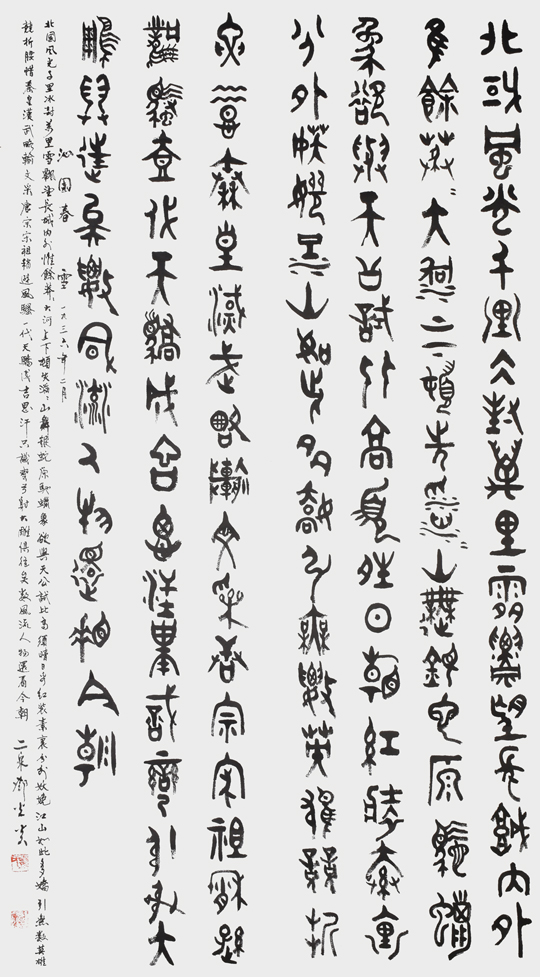 北國風光千里冰封萬里雪飄望長城内外
惟餘莽〻大河上下頓失滔〻山舞銀蛇原馳蠟
象欲與天公試比高須晴日看紅裝素裹
分外妖嬈江山如此多嬌引無數英雄競折
腰惜秦皇漢武略輸文采唐宗宋祖稍遜
風騷壹代天驕成吉思汗只識彎弓射大
雕俱往矣數風流人物還看今朝
沁園春 雪 一九三六年二月
北國風光千里冰封萬里雪飄望長城内外惟餘莽〻大河上下頓失滔〻山舞銀蛇原馳蠟象欲與天公試比高須晴日看紅裝素裹分外妖嬈江山如此多嬌引無數英雄
競折腰惜秦皇漢武略輸文采唐宗宋祖稍遜風騷一代天驕成吉思汗只識彎弓射大雕俱往矣數風流人物還看今朝 二泉鄧